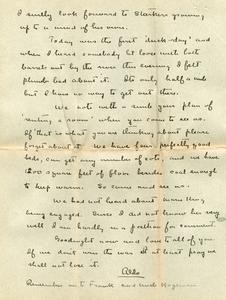 I really look forward to Starker's growing
up to a mind of his own.
Today was the first "duck-day" and
when I heard somebody let loose with both
barrels out by the river this evening I felt
plumb bad about it. It's only half a mile
but I have no way to get out there.
We note with a smile your plan of
"renting a room" when you come to see us.
If that is what you are thinking about please
forget about it. We have four perfectly good
beds, can get any number of cots, and we have
1200 square feet of floor besides coal enough
to keep warm. So come and see us.
We had not heard about
being engaged. Since I did not know he very
well I am hardly in a position for comment.
Goodnight now and love to all of you.
If we don't win the war I at least pray we
shall not lose it.
Aldo
Remember me to Frank and Uncle